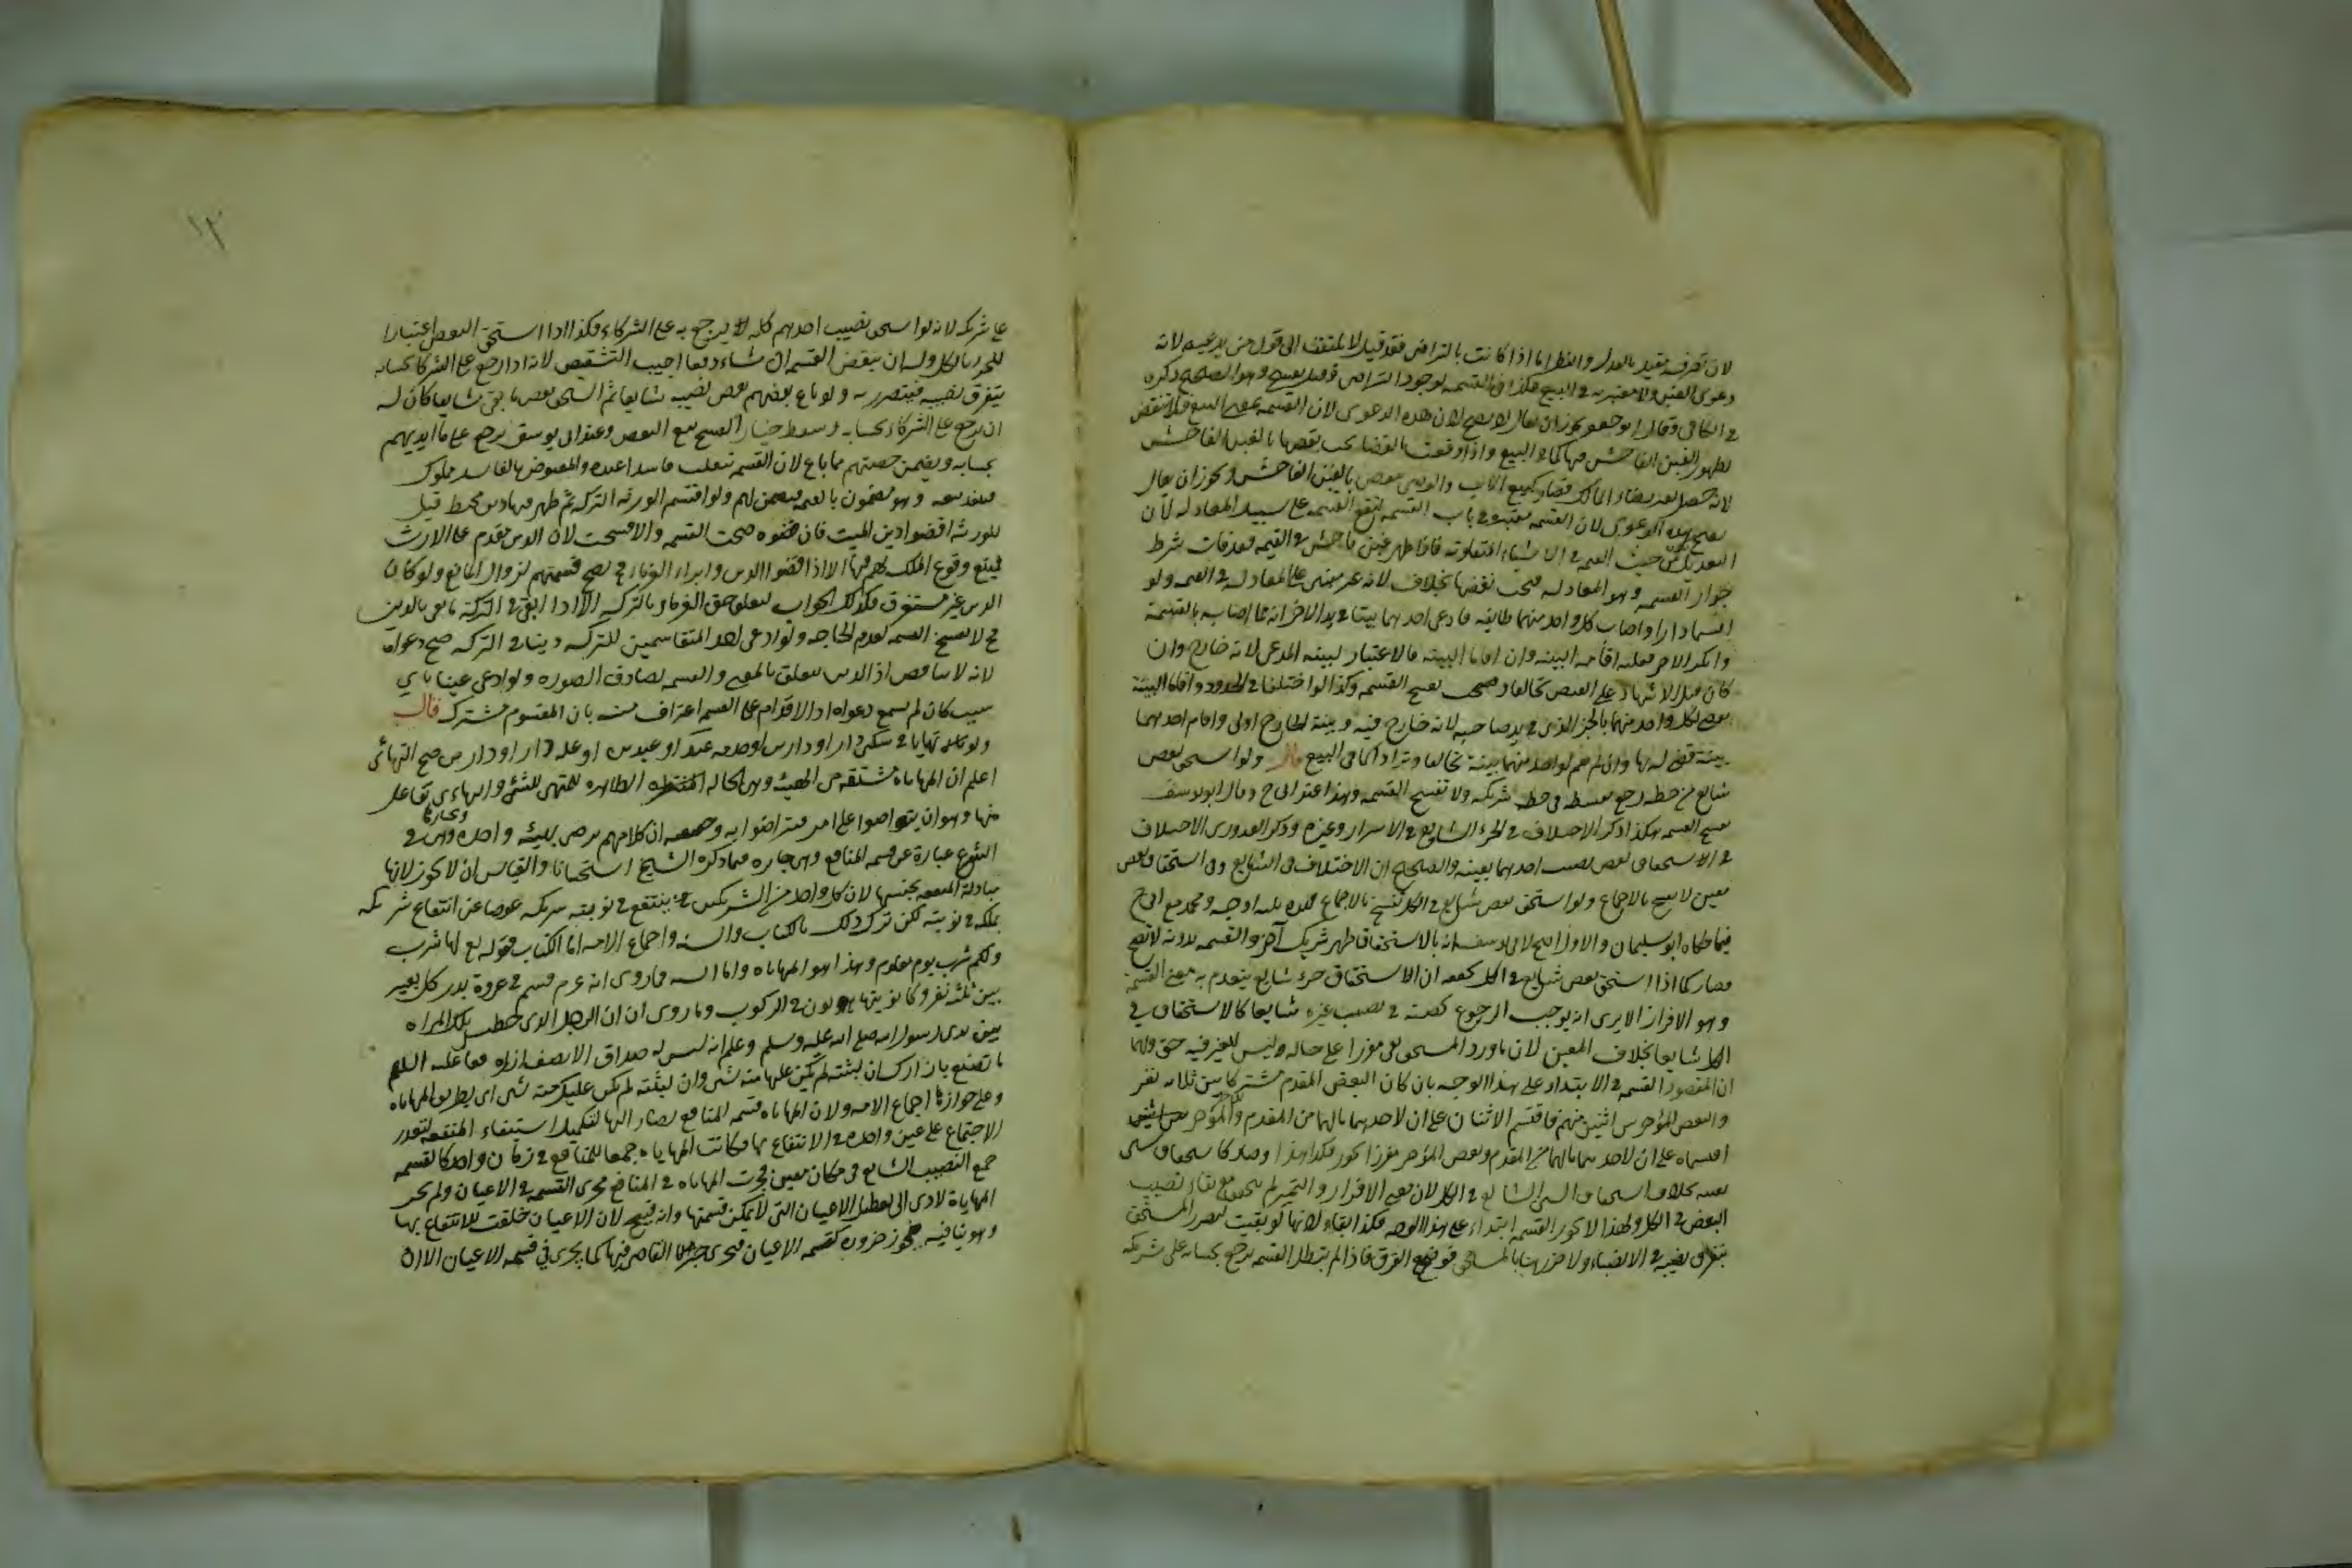 لان تصرفه مقيد بالعدل والنظر اما اذا كانت بالتراضي فقد قيل لا يلتفت الى قول من يدعيه لانه
دعوى الغبن ولا معتبر به في البيع فكذا في القسمة لوجود التراضي وقيل تفسخ وهو الصحيح ذكره
في الكافي وقال ابو جعفر يجوز ان يقال لا يصح لان هذه الدعوى لان القسمة بمعنى البيع فلا تنقض
لظهور الغبن الفاحش فيها كما في البيع واذا وقعت بالقضا يجب نقضها بالغبن الفاحش
لانه حصل بغير رضاء المالك فصار كبيع الاب والوصي ينقض بالغبن الفاحش ويجوز ان يقال
يصح هذه الدعوى لان القسمة معتبرة في باب القسمة لتقع القسمة على سبيل المعادلة لان
التعديل من حيث القيمة في الاشياء المتفاوتة فاذا ظهر غبن فاحش في القيمة فقد فات شرط
جواز القسمة وهو المعادلة فيجب نقضها بخلاف لانه غير مبني على المعادلة في القيمة ولو
اقتسما دارا واصاب كل واحد منهما طايفة فادعى احدهما بيتا في يد الاخر انه مما اصابه بالقسمة
وانكر الاخر فعليه اقامة البينة وان اقاما البينة فالاعتبار لبينة المدعى لانه خارج وان
كان قبل الاشهاد على القبض تحالفا وتفسخ القسمة وكذا لو اختلفا في الحدود واقاما البينة
يقضى لكل واحد منهما بالجزء الذي في يد صاحبه لانه خارج فيه وبينة الخارج اولى وان اقام احدهما
بينة قضي له بها وان لم تقم لواحد منهما بينة تحالفا وترادا كما في البيع قال ولو استحق بعض
شايع من حظه رجع بقسطه في حظ شريكه ولا تفسخ القسمة وهذا عند ابي ح وقال ابو يوسف
تفسخ القسمة هكذا ذكر الاختلاف في الجزء الشايع في الاسرار وغيره وذكر القدوري الاختلاف
في الاستحقاق بعض نصيب احدهما بعينه والصحيح ان الاختلاف في الشايع وفي استحقاق بعض
معين لا تفسخ بالاجماع ولو استحق بعض شايع في الكل تفسخ بالاجماع فهذه ثلثة اوجه ومحمد مع ابي ح
فيما حكاه ابو سليمان والاول اصح لابي يوسف انه بالاستحقاق ظهر شريك آخر والقسمة بدونه لا تصح
فصار كما اذا استحق بعض شايع في الكل ان الاستحقاق جزء شايع ينعدم به معنى القسمة
وهو الافراز الا يرى انه يوجب الرجوع بحصته في نصيب غيره شايعا كالاستحقاق في
الكل شايعا بخلاف المعين لان ما ورد المستحق بقي مفرزا على حاله وليس للغير فيه حق ولهما
ان المقصود القسمة في الابتداء على هذا الوجه بان كان البعض المقدم مشتركا بين ثلاثة نفر
والبعض المؤخر بين اثنين منهم فاقتسم الاثنان على ان لاحدهما ما لهما من المقدم والمؤخر
اقتسماه على ان لاحدهما ما لهما من المقدم وبعض المؤخر مفرزا يجوز فكذا هذا وصار كاستحقاق شيء
بعينه بخلاف استحقاق الشايع في الكل لان معنى الافراز والتمييز لم يتحقق مع بقاء نصيب
البعض في الكل ولهذا لا يجوز القسمة ابتداء على هذا الوجه فكذا بقاء لانها لو بقيت لتضرر المستحق
بتفرق نصيبه في الانصباء ولا ضرر هنا بالمستحق فوضح الفرق فاذا لم تبطل القسمة يرجع بحسابه على شريكه
على شريكه لانه لو استحق نصيب احدهم كله لا يرجع به على الشركاء فكذا اذا استحق البعض اعتبارا
للجزء بالكل وله ان ينقض القسمة ان شاء دفعا لعيب التشقيص لانه اذا رجع على الشركا بحسابه
يتفرق نصيبه فيتضرر به ولو باع بعضهم بعض نصيبه شايعا ثم استحق بعض ما بقي شايعا كان له
ان يرجع على الشركاء بحسابه وسقط خيار الفسخ ببيع البعض وعند ابي يوسف يرجع على ما في ايديهم
بحسابه ويضمن حصتهم مما باع لان القسمة تنقلب فاسدا عنده والمقبوض بالفاسد مملوك
فينفذ بيعه وهو مضمون بالقيمة فيضمن لهم ولو اقتسم الورثة التركة ثم ظهر فيها دين محيط قيل
للورثة اقضوا دين الميت فان قضوه صحت القسمة والا فسخت لان الدين مقدم على الارث
فيمنع وقوع الملك لهم فيها الا اذا قضوا الدين وابراء الغرماء ح تصح قسمتهم لزوال المانع ولو كان
الدين غير مستغرق فكذلك الجواب لتعلق حق الغرماء بالتركة الا اذا ابقي في التركة ما يفي بالدين
ح لا تفسخ القسمة لعدم الحاجة ولو ادعى احد المتقاسمين للتركة دينا في التركة صح دعواه
لانه لا تناقض اذ الدين يتعلق بالمعنى والقسمة تصادف الصورة ولو ادعى عينا باي
سبب كان لم تسمع دعواه اذ الاقدام على القسمة اعتراف منه بان المقسوم مشترك قال
ولو تهايئا في سكنى دار او دارين او خدمة عبد او عبدين او غلة دار او دارين صح التهائي
اعلم ان المهاياة مشتقة من الهيئة وهي الحالة الظاهرة للمتهيئ للشيء والتهايؤ تفاعل
منها وهو ان يتواضعوا على امر فيتراضوا به وحقيقته ان كلا منهم يرضى بهيئة واحدة وهي في
الشرع عبارة عن قسمة المنافع وهي جايزة فيما ذكره الشيخ استحسانا والقياس ان لا يجوز لانها
مبادلة المنفعة بجنسها لان كل واحد من الشريكين ينتفع في نوبته بملك شريكه عوضا عن انتفاع شريكه
بملكه في نوبته لكن ترك ذلك بالكتاب والسنة واجماع الامة اما الكتاب فقوله تع لها شرب
ولكم شرب يوم معلوم وهذا هو المهاياة واما السنة فما روي انه ع م قسم في غزوة بدر كل بعير
بين ثلثة نفر وكانوا يتهايؤون في الركوب وما روي ان ان الرجل الذي خطب تلك المراة
بين يدي رسول الله صلى الله عليه وسلم وعلم انه ليس له صداق الا نصف ازاره فقال عليه السلم
ما تصنع بازارك ان لبسته لم يكن عليها منه شيء وان لبسته لم يكن عليك منه شيء اي بطريق المهاياة
وعلى جوازها اجماع الامة ولان المهاياة قسمة المنافع يصار اليها لتكميل استيفاء المنفعة لتعذر
الاجتماع على عين واحدة في الانتفاع بها فكانت المهاياة جمعا للمنافع في زمان واحد كالقسمة
جمع النصيب الشايع في مكان معين فجرت المهاياة في المنافع مجرى القسمة في الاعيان ولو لم تجز
المهاياة لادى الى تعطيل الاعيان التي لا يمكن قسمتها وانه قبيح لان الاعيان خلقت للانتفاع بها
وهو ينافيه فيجوز ضرورة كقسمة الاعيان فيجري جبر القاضي فيها كما يجري في قسمة الاعيان الا ان